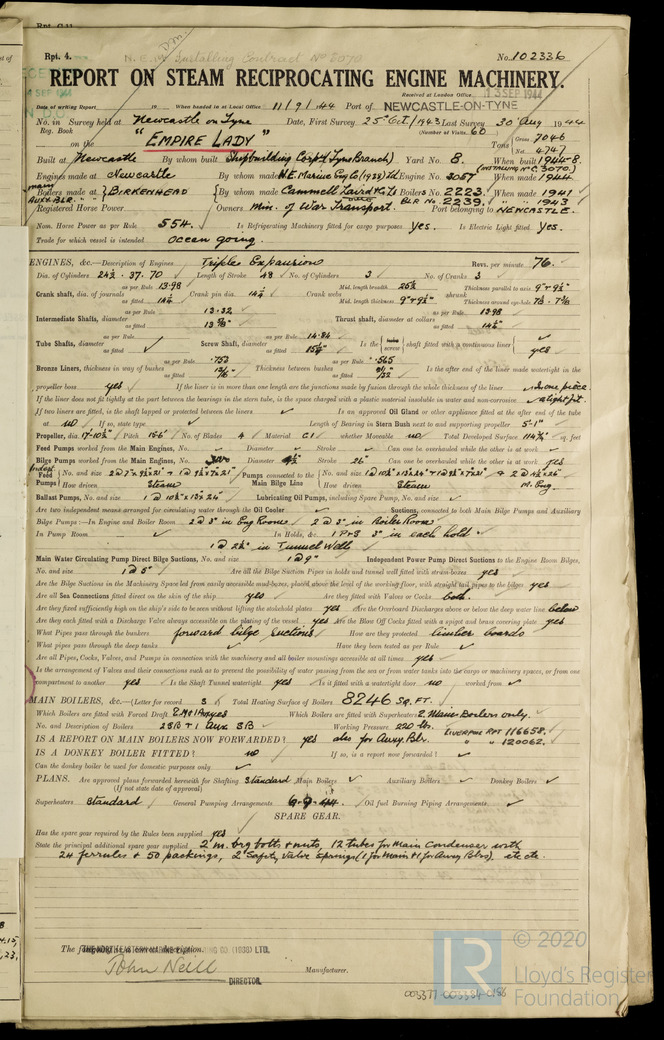 Rpt. 4.
No. 102336
REPORT ON STEAM RECIPROCATING ENGINE MACHINERY.
Received at London Office 13 SEP 1944
Date of writing Report 19 When handed in at Local Office 11/9/44 Port of NEWCASTLE-ON-TYNE
No. in Survey held at Newcastle on Tyne Date, First Survey 25th Oct/1943 Last Survey 30 Aug 1944
Reg. Book (Number of Visits 60
on the "EMPIRE LADY" Tons Gross 7046 Net 4747
Built at Newcastle By whom built Shipbuilding Corpn (Tyne Branch) Yard No. 8. When built 1944-8.
Engines made at Newcastle By whom made N.E. Marine Eng Co (1938) Ltd Engine No. 3057 When made 1944
Boilers made at BIRKENHEAD By whom made Cammell Laird & Co Ld Boilers No. 2223. When made 1941
2239. 1943
Registered Horse Power Owners Min. of War Transport. Port belonging to NEWCASTLE.
Nom. Horse Power as per Rule 554. Is Refrigerating Machinery fitted for cargo purposes Yes. Is Electric Light fitted Yes.
Trade for which vessel is intended Ocean going.
ENGINES, &c.—Description of Engines Triple Expansion Revs. per minute 76.
Dia. of Cylinders 24½ . 37. 70 Length of Stroke 48 No. of Cylinders 3 No. of Cranks 3
Crank shaft, dia. of journals as per Rule 13.98 as fitted 14¼ Crank pin dia. 14¼ Crank webs Mid. length breadth Mid. length thickness 9" shrunk Thickness parallel to axis Thickness around eye-hole
Intermediate Shafts, diameter as per Rule 13.32 as fitted Thrust shaft, diameter at collars as per Rule 13.98 as fitted 14¼"
Tube Shafts, diameter as per Rule as fitted Screw Shaft, diameter as per Rule 14.84 as fitted Is the screw shaft fitted with a continuous liner yes
Bronze Liners, thickness in way of bushes as per Rule .753 as fitted Thickness between bushes as per Rule .565 as fitted Is the after end of the liner made watertight in the
propeller boss yes If the liner is in more than one length are the junctions made by fusion through the whole thickness of the liner In one piece
If the liner does not fit tightly at the part between the bearings in the stern tube, is the space charged with a plastic material insoluble in water and non-corrosive. a tight fit.
If two liners are fitted, is the shaft lapped or protected between the liners Is an approved Oil Gland or other appliance fitted at the after end of the tube
at no If so, state type Length of Bearing in Stern Bush next to and supporting propeller 5'-1"
Propeller, dia. 17-10½" Pitch 15.6 No. of Blades 4 Material C.I whether Moveable no Total Developed Surface sq. feet
Feed Pumps worked from the Main Engines, No. Diameter Stroke Can one be overhauled while the other is at work
Bilge Pumps worked from the Main Engines, No. Diameter 4½" Stroke 26" Can one be overhauled while the other is at work yes
Feed Pumps No. and size Pumps connected to the Main Bilge Line No. and size
How driven Steam How driven Steam M. Eng.
Ballast Pumps, No. and size 1 @ 10½"x13"x24" Lubricating Oil Pumps, including Spare Pump, No. and size
Are two independent means arranged for circulating water through the Oil Cooler Suctions, connected to both Main Bilge Pumps and Auxiliary
Bilge Pumps:—In Engine and Boiler Room 2 @ 3" in Eng Room 2 @ 3" in Boiler Room
In Pump Room In Holds, &c. 1 P+S 3" in each hold
1 @ 2½" in Tunnel Well
Main Water Circulating Pump Direct Bilge Suctions, No. and size 1 @ 9" Independent Power Pump Direct Suctions to the Engine Room Bilges,
No. and size 1 @ 5" Are all the Bilge Suction Pipes in holds and tunnel well fitted with strum-boxes yes
Are the Bilge Suctions in the Machinery Space led from easily accessible mud-boxes, placed above the level of the working floor, with straight tail pipes to the bilges yes
Are all Sea Connections fitted direct on the skin of the ship yes Are they fitted with Valves or Cocks both.
Are they fixed sufficiently high on the ship's side to be seen without lifting the stokehold plates yes Are the Overboard Discharges above or below the deep water line below
Are they each fitted with a Discharge Valve always accessible on the plating of the vessel yes Are the Blow Off Cocks fitted with a spigot and brass covering plate yes
What Pipes pass through the bunkers forward bilge suctions How are they protected limber boards
What pipes pass through the deep tanks Have they been tested as per Rule
Are all Pipes, Cocks, Valves, and Pumps in connection with the machinery and all boiler mountings accessible at all times yes
Is the arrangement of Valves and their connections such as to prevent the possibility of water passing from the sea or from water tanks into the cargo or machinery spaces, or from one
compartment to another yes Is the Shaft Tunnel watertight yes Is it fitted with a watertight door no worked from
MAIN BOILERS, &c.—(Letter for record S ) Total Heating Surface of Boilers 8246 SQ. FT.
Which Boilers are fitted with Forced Draft 2 M & 1 Aux yes Which Boilers are fitted with Superheaters 2 Main Boilers only.
No. and Description of Boilers 2 SB & 1 Aux SB Working Pressure 220 lbs. LIVERPOOL RPT 116658.
IS A REPORT ON MAIN BOILERS NOW FORWARDED? yes also for Auxy Blr. 120062.
IS A DONKEY BOILER FITTED? no If so, is a report now forwarded?
Can the donkey boiler be used for domestic purposes only
PLANS. Are approved plans forwarded herewith for Shafting Standard Main Boilers Auxiliary Boilers Donkey Boilers
(If not state date of approval)
Superheaters Standard General Pumping Arrangements 6-9-44. Oil fuel Burning Piping Arrangements
SPARE GEAR.
Has the spare gear required by the Rules been supplied yes
State the principal additional spare gear supplied 2 m. brg bolts & nuts, 12 tubes for Main Condenser with
24 ferrules & 50 packings, 2 Safety Valve Springs (1 for Main & 1 for Auxy Blrs), etc etc.
The foregoing is a correct description.
John Neill
DIRECTOR. Manufacturer.
003377-003384-0156
LR © 2020
Lloyd's Register
Foundation